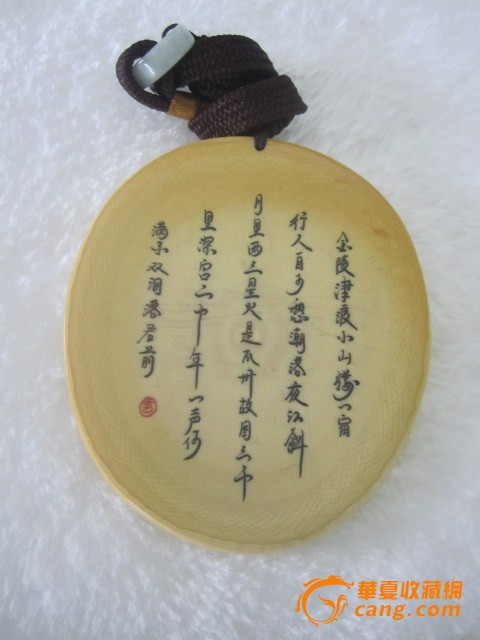 金陵津渡小山楼一宿
行人自可愁潮落夜江斜
月里两三星火是瓜州故国三千
里深宫二十年一声何
满子双泪落君前
華夏收藏網
cang.com